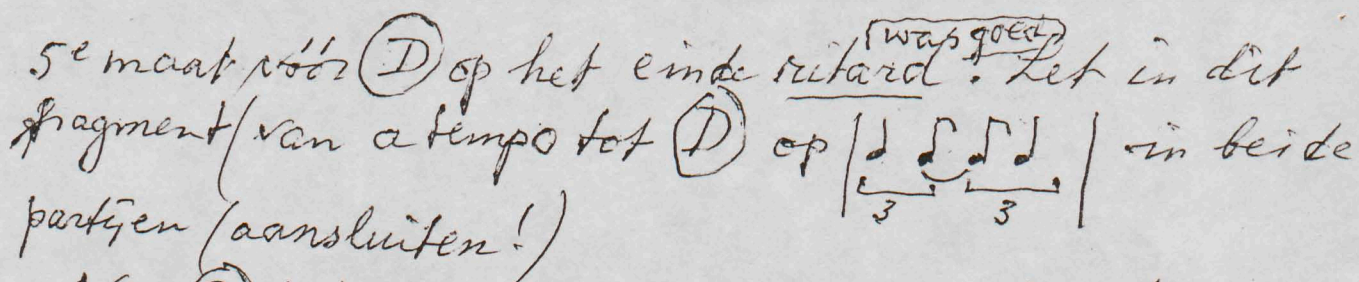 (was goed)
5e maat vóór D op het einde ritard. Let in dit
fragment (van a tempo tot D op | ♩ ♪ ♪ ♩ | in beide
3 3
partijen (aansluiten!)